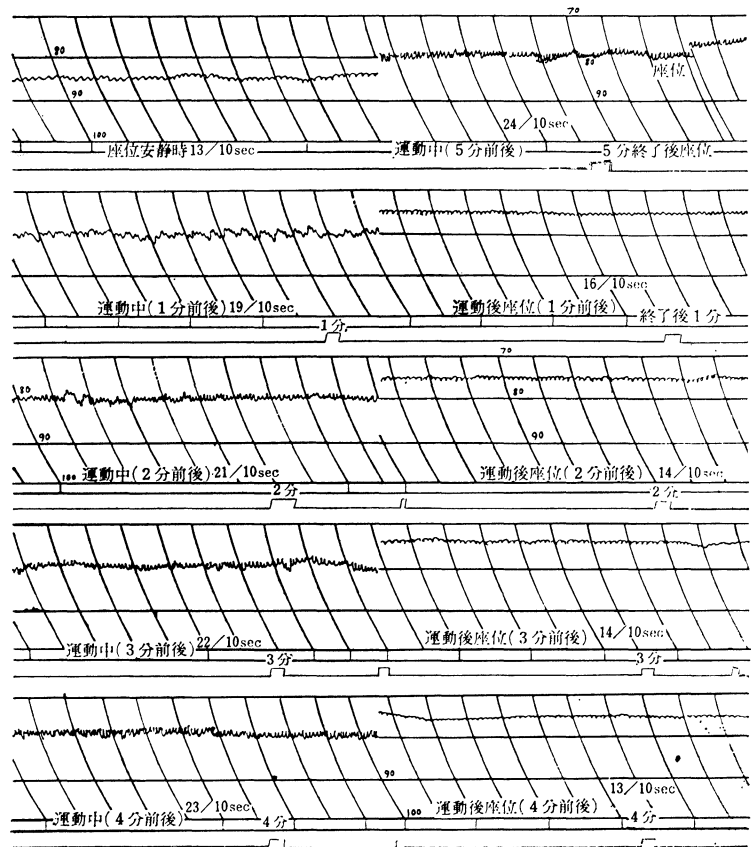 70
80
80
座位
90
90
24/10sec
100
座位安静時13/10sec
運動中(5分前後)
5分終了後座位
16/10sec
運動中(1分前後)19/10sec
運動後座位(1分前後)
終了後1分
1分
70
80
80
90
90
100
運動中(2分前後)21/10sec
運動後座位(2分前後)
14/10sec
2分
2分
運動中(3分前後)
22/10sec
運動後座位(3分前後)
14/10sec
3分
3分
90
13/10sec
運動中(4分前後)
23/10sec
4分
100
運動後座位(4分前後)
4分